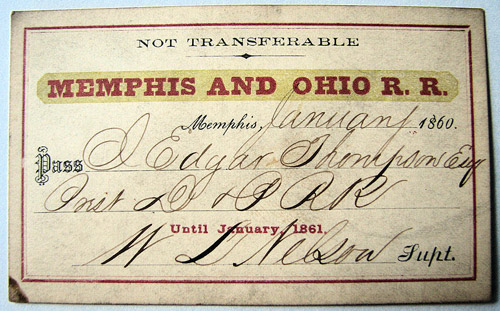 NOT TRANSFERABLE
MEMPHIS AND OHIO R. R.
Memphis, January 1860.
Pass J Edgar Thompson Esq
Prest & P R R
Until January, 1861.
W D Nelson Supt.